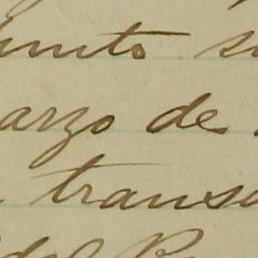 unto s
arzo de
trans
del